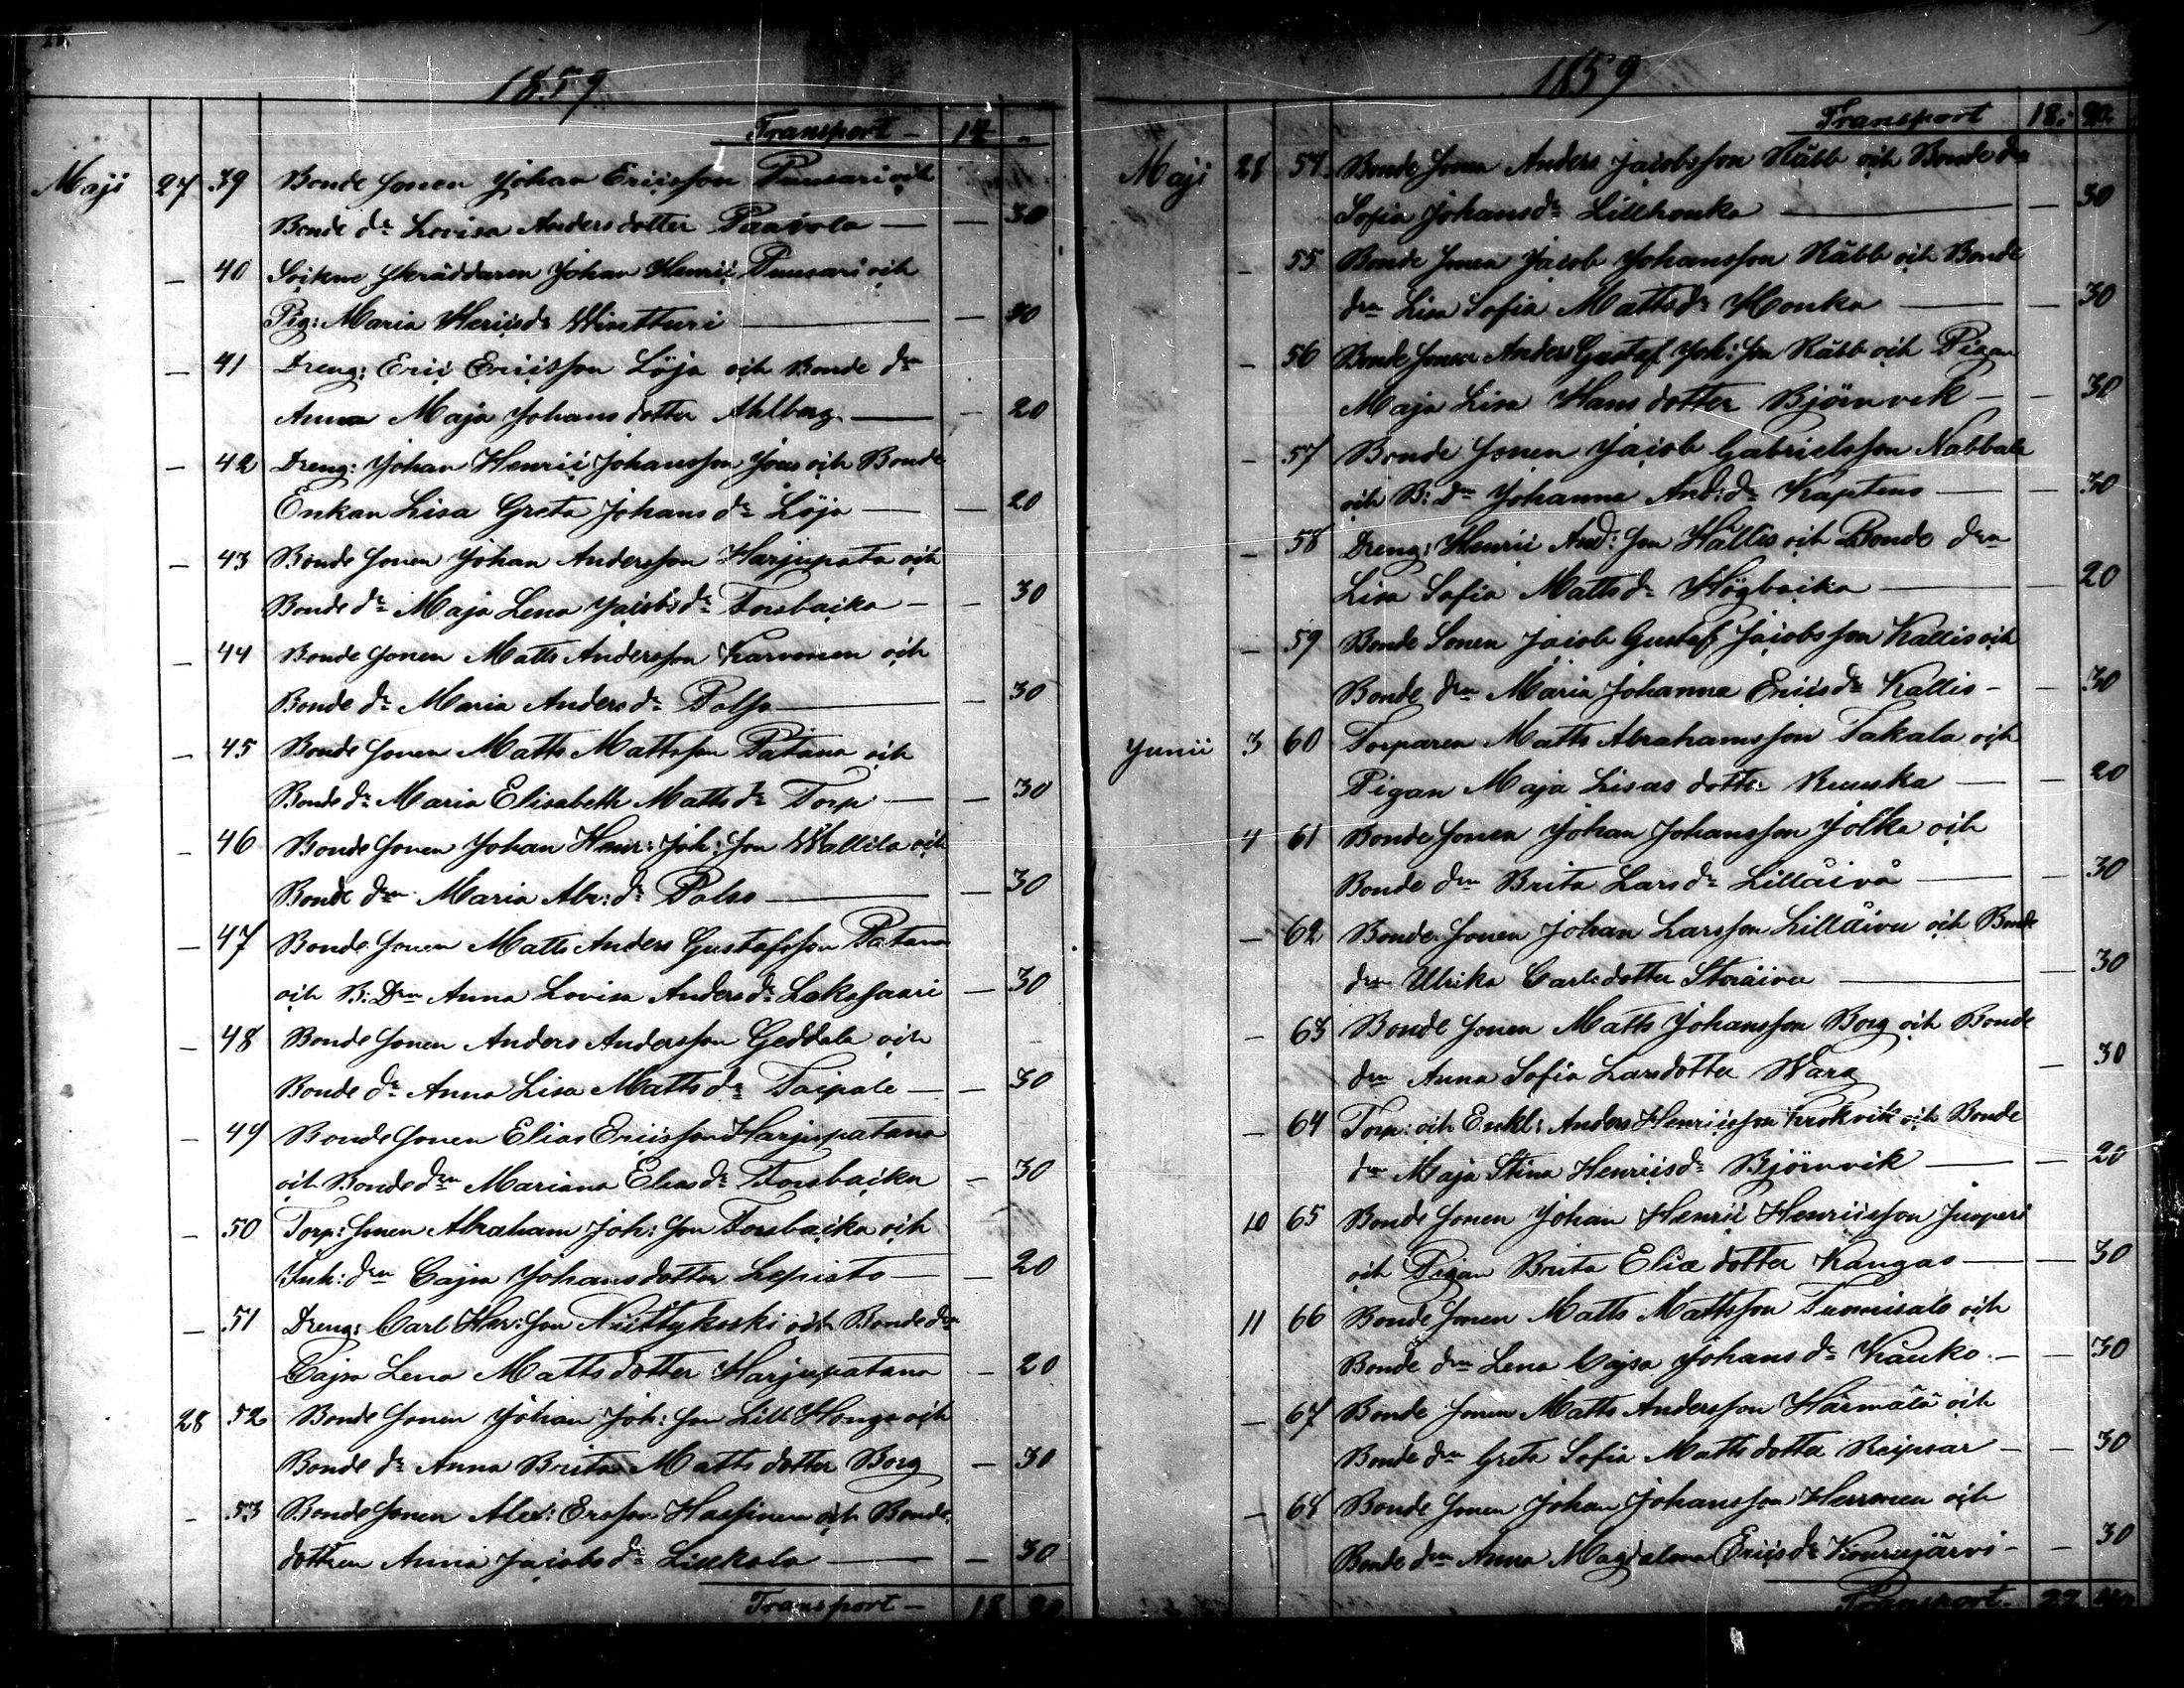 1859
Transport — 14 "
Maji 27 39 Bonde Sonen Johan Ericsson Punsari och
Bonde dr Lovisa Andersdotter Paavola — — 30
— 40 Sockne Skräddaren Johan Henric Punsari och
Pig: Maria Hericsdr Wintturi — — 20
— 41 Dreng: Eric Ericsson Löja och Bonde drn
Anna Maja Johansdotter Ahlberg — — 20
— 42 Dreng: Johan Henric Johansson Joas och Bonde
Enkan Lisa Greta Johansdr Löja — — 20
— 43 Bonde Sonen Johan Andersson Harjupata och
Bonde dr Maja Lena Jacobsdr Forsbacka — — 30
— 44 Bonde Sonen Matts Andersson Karvonen och
Bonde dr Maria Andersdr Polso — — 30
— 45 Bonde Sonen Matts Mattsson Patana och
Bonde dr Maria Elisabeth Mattsdr Torp — — 30
— 46 Bonde Sonen Johan Henr: Joh: Son Wallila och
Bonde drn Maria Abr: dr Polso — — 30
— 47 Bonde Sonen Matts Anders Gustafsson Patana
och B: Drn Anna Lovisa Andersdr Lakasaari — 30
— 48 Bonde Sonen Anders Andersson Geddala och
Bonde dr Anna Lisa Mattsdr Taipale — — 30
— 49 Bonde Sonen Elias Ericsson Harjupatana
och Bonde drn Mariana Eliasdr Forsbacka — 30
— 50 Torp: Sonen Abraham Joh: Son Forsbacka och
Inh: drn Cajsa Johansdotter Lepisto — — 20
— 51 Dreng: Carl Her: Son Niittykoski och Bonde drn
Cajsa Lena Mattsdotter Harjupatana — 20
28 52 Bonde Sonen Johan Joh: Son Lill Honga och
Bonde dr Anna Brita Matts dotter Borg — 30
— 53 Bonde Sonen Alex: Ersson Hassinen och Bonde
dottren Anna Jacobsdr Lillkala — — 30
Transport — 18 20
1859
Transport 18. 20.
Maji 28 54. Bonde Sonen Anders Jacobsson Räbb och Bonde drn
Sofia Johansdr Lillhonka — — 30
— 55 Bonde Sonen Jacob Johansson Räbb och Bonde
drn Lisa Sofia Mattsdr Honka — — 30
— 56 Bonde Sonen Anders Gustaf Joh: Son Räbb och Pigan
Maja Lisa Hans dotter Björnvik — — 30
— 57 Bonde Sonen Jacob Gabrielsson Nabbala
och B: Drn Johanna And: dr Kaptens — — 30
— 58 Dreng: Henric And: Son Hällis och Bonde drn
Lisa Sofia Mattsdr Högbacka — — 20
— 59 Bonde Sonen Jacob Gustaf Jacobsson Kallis och
Bonde drn Maria Johanna Ericsdr Kallis — — 30
Junii 3 60 Torparen Matts Abrahamsson Takala och
Pigan Maja Lisas dotter Ruuska — — 20
4 61 Bonde Sonen Johan Johansson Jolka och
Bonde drn Brita Larsdr Lillåivå — — 30
— 62 Bonde Sonen Johan Larsson Lillåivu och Bonde
drn Ulrika Carlsdotter Storåivu — — 30
— 63 Bonde Sonen Matts Johansson Borg och Bonde
drn Anna Sofia Larsdotter Wara — 30
— 64 Torp: och Enkl: Anders Henricsson Krokvik och Bonde
drn Maja Stina Henricsdr Björnvik — — 20
10 65 Bonde Sonen Johan Henric Henricsson Junperi
och Pigan Brita Eliæ dotter Kangas — — 30
11 66 Bonde Sonen Matts Mattsson Tunnisalo och
Bonde drn Lena Cajsa Johansdr Kauko — — 30
— 67 Bonde Sonen Matts Andersson Härmälä och
Bonde drn Greta Sofia Mattsdotter Reipsar — — 30
— 68 Bonde Sonen Johan Johansson Herronen och
Bonde drn Anna Magdalena Ericsdr Kivurujärvi — — 30
Transport. 22